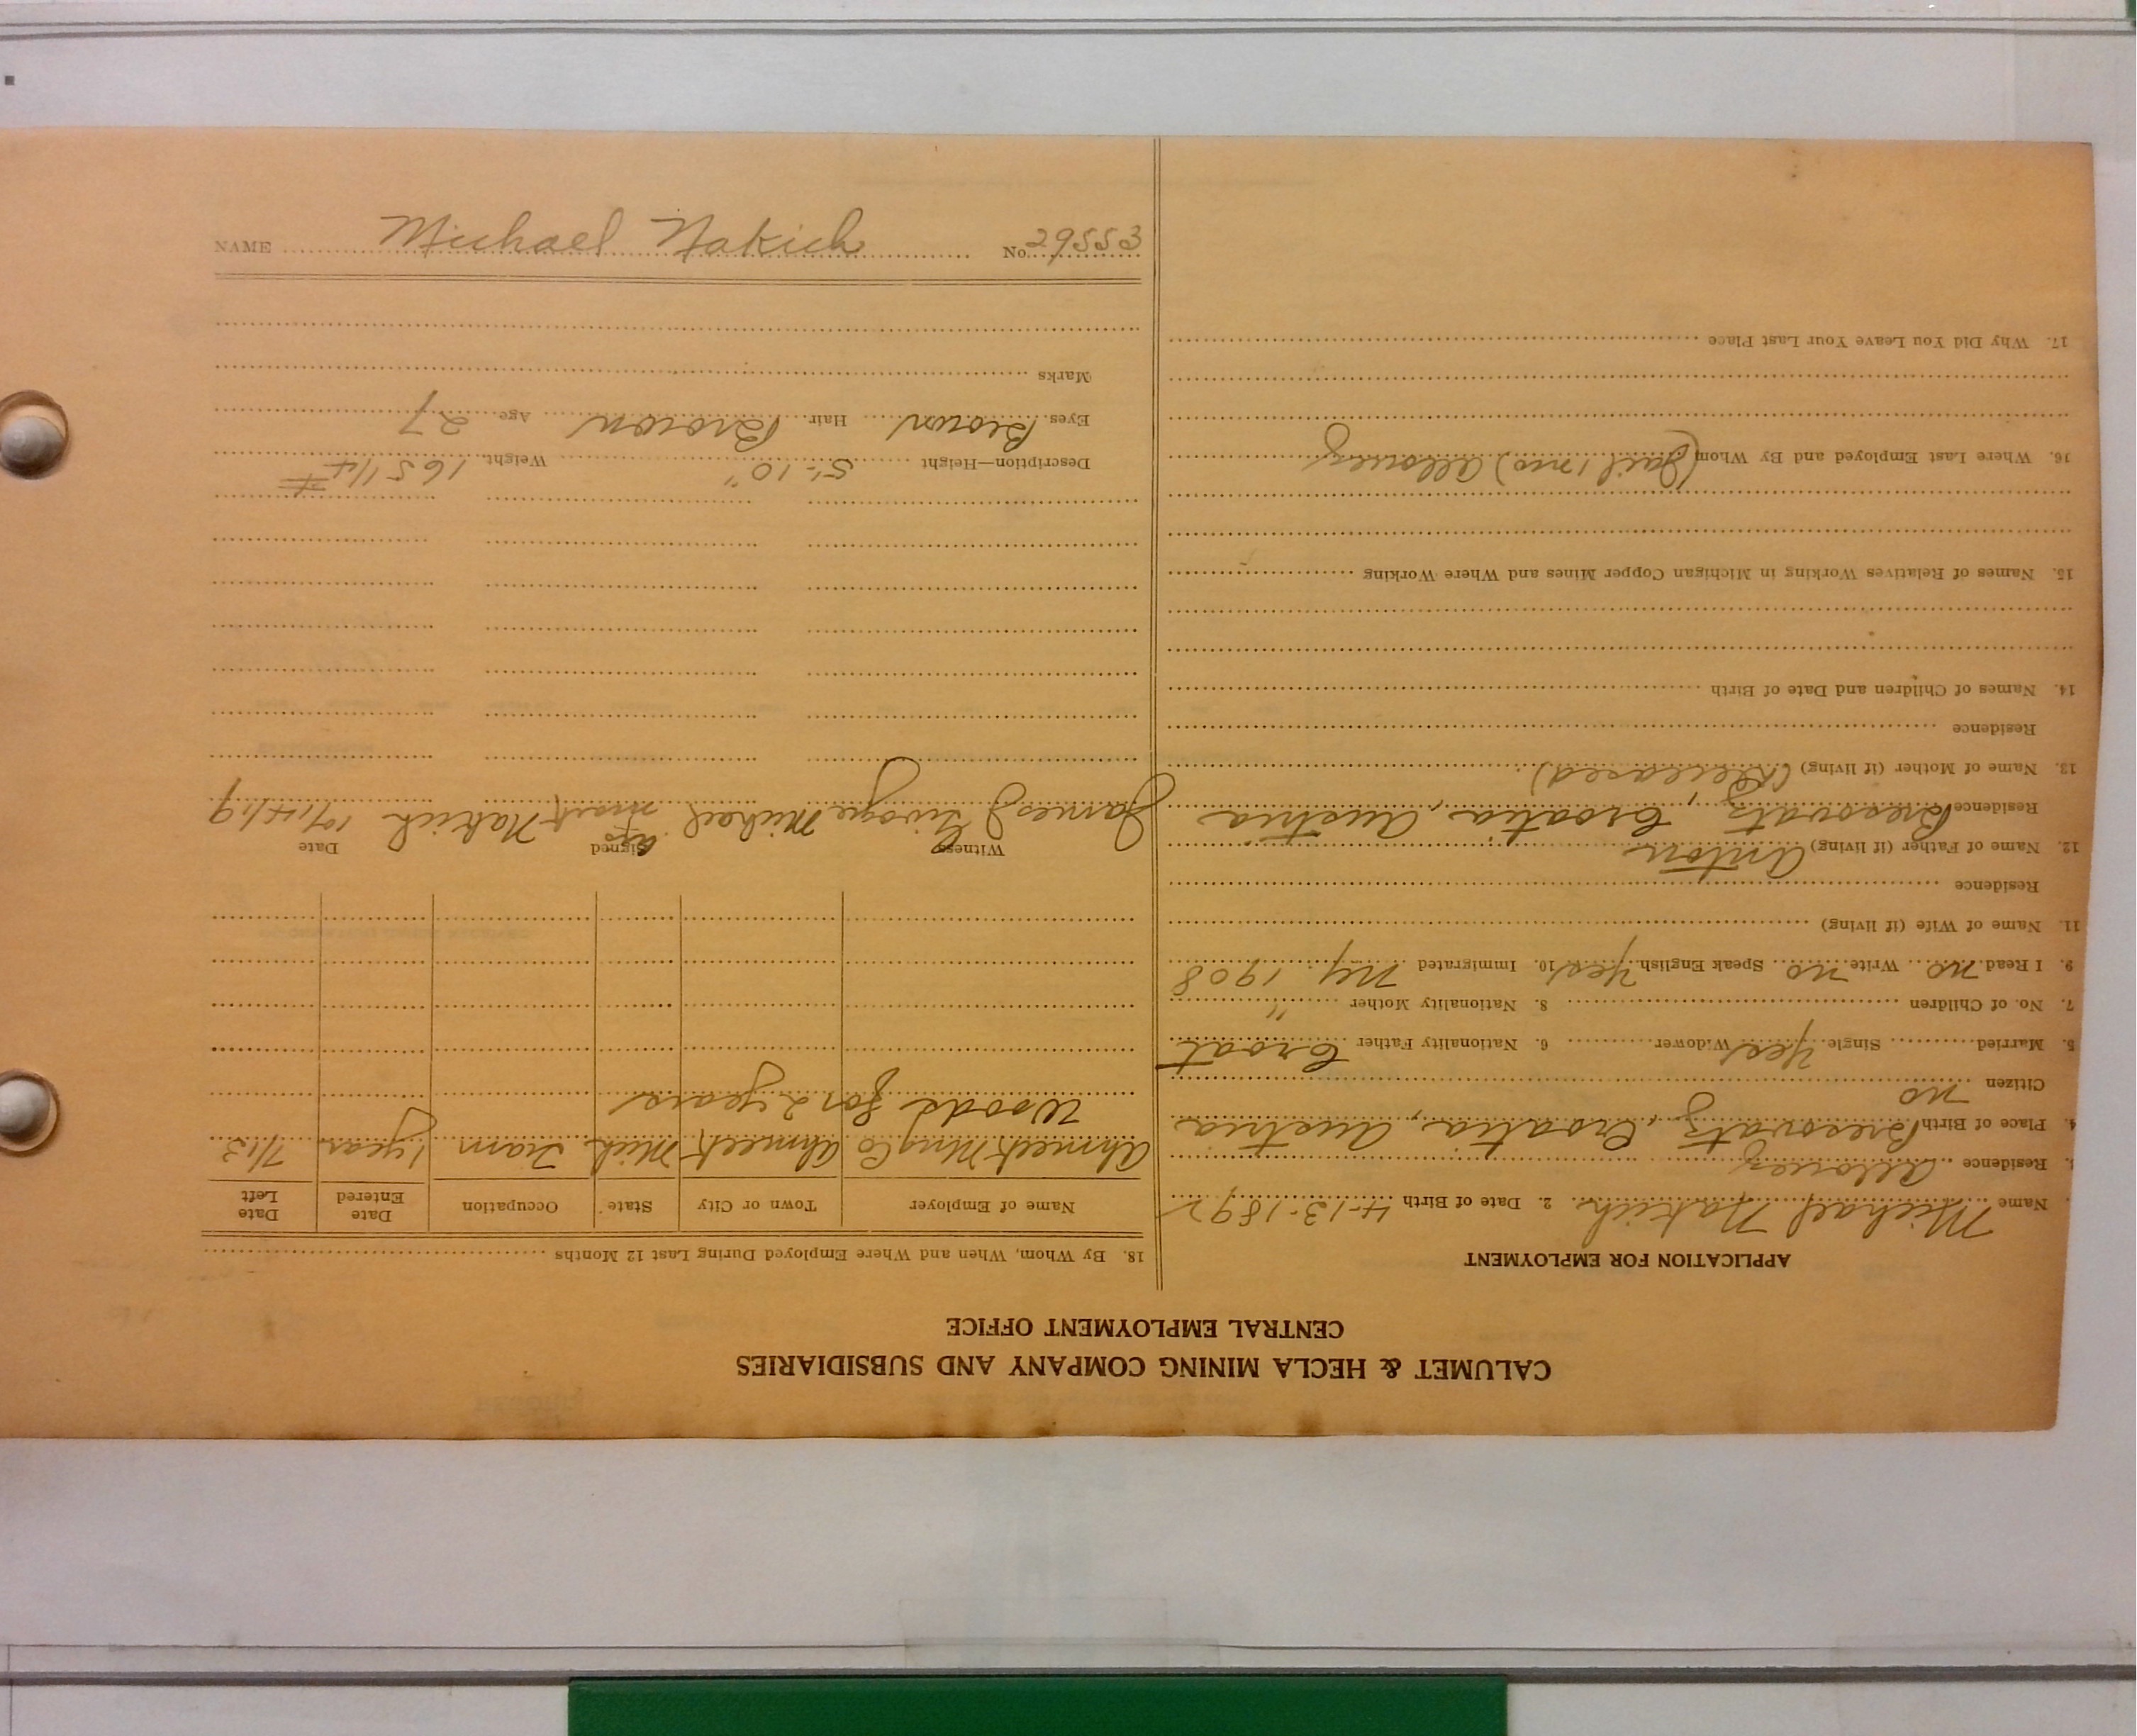 CALUMET & HECLA MINING COMPANY AND SUBSIDIARIES
CENTRAL EMPLOYMENT OFFICE
APPLICATION FOR EMPLOYMENT
Name Michael Nakich 2. Date of Birth 4-13-1892
3. Residence Allouez
4. Place of Birth Bresovatz, Croatia, Austria
Citizen no
5. Married Single Yes Widower 6. Nationality Father Croat
7. No. of Children 8. Nationality Mother "
9. I Read no Write no Speak English Yes 10. Immigrated NY. 1908
11. Name of Wife (if living)
Residence
12. Name of Father (if living) Anton
Residence Bresovatz, Croatia, Austria
13. Name of Mother (if living) (Deceased)
Residence
14. Names of Children and Date of Birth
15. Names of Relatives Working in Michigan Copper Mines and Where Working
16. Where Last Employed and By Whom (Jail 1 mo) Allouez
17. Why Did You Leave Your Last Place
18. By Whom, When and Where Employed During Last 12 Months
Name of Employer Town or City State Occupation Date Entered Date Left
Ahmeek Mng Co Ahmeek Mich. Tram 1 year 7/13
Woods for 2 years
Witness Signed Date
James J. Michael his mark Nakich 10/14/19
Description—Height 5'-10" Weight 165 1/4 #
Eyes Brown Hair Brown Age 27
Marks
NAME Michael Nakich No. 29553